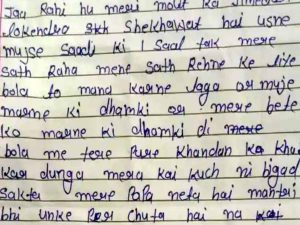 Jaa Rahi hu meri mout ka
Lokendra skh Shekhawat hai usne
mujse Saadi ki 1 Saal tak mere
Sath Raha mene Sath Rehne ke liye
bola to mana karne laga or muje
marne ki dhamki or mere bete
ko marne ki dhamki di
bola me tere Pure Khandan ko
kar dunga mera kai kuch ni bigad
Sakta mere PaPa neta hai mantri
bhi unke Per chuta hai na